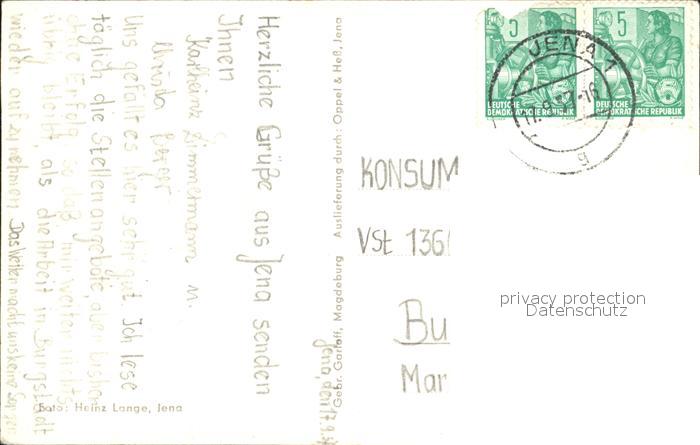 Herzliche Grüße aus Jena senden
Ihnen
Karlheinz Zimmermann u.
Berger
Uns gefällt es hier sehr gut. Ich lese
täglich die Stellenangebote, aber bisher
ohne Erfolg, so daß mir weiter nichts
übrig bleibt, als die Arbeit in Burgstädt
wieder aufzunehmen. Das Wetter macht uns keine Sorgen
Foto: Heinz Lange, Jena
Gebr. Garloff, Magdeburg Auslieferung durch: Oppel & Heß, Jena
Jena, den 17.9.
5
DEUTSCHE
DEMOKRATISCHE REPUBLIK
5
DEUTSCHE
DEMOKRATISCHE REPUBLIK
JENA 1
g
KONSUM
VSt 136
Bu
Mar
privacy protection
Datenschutz